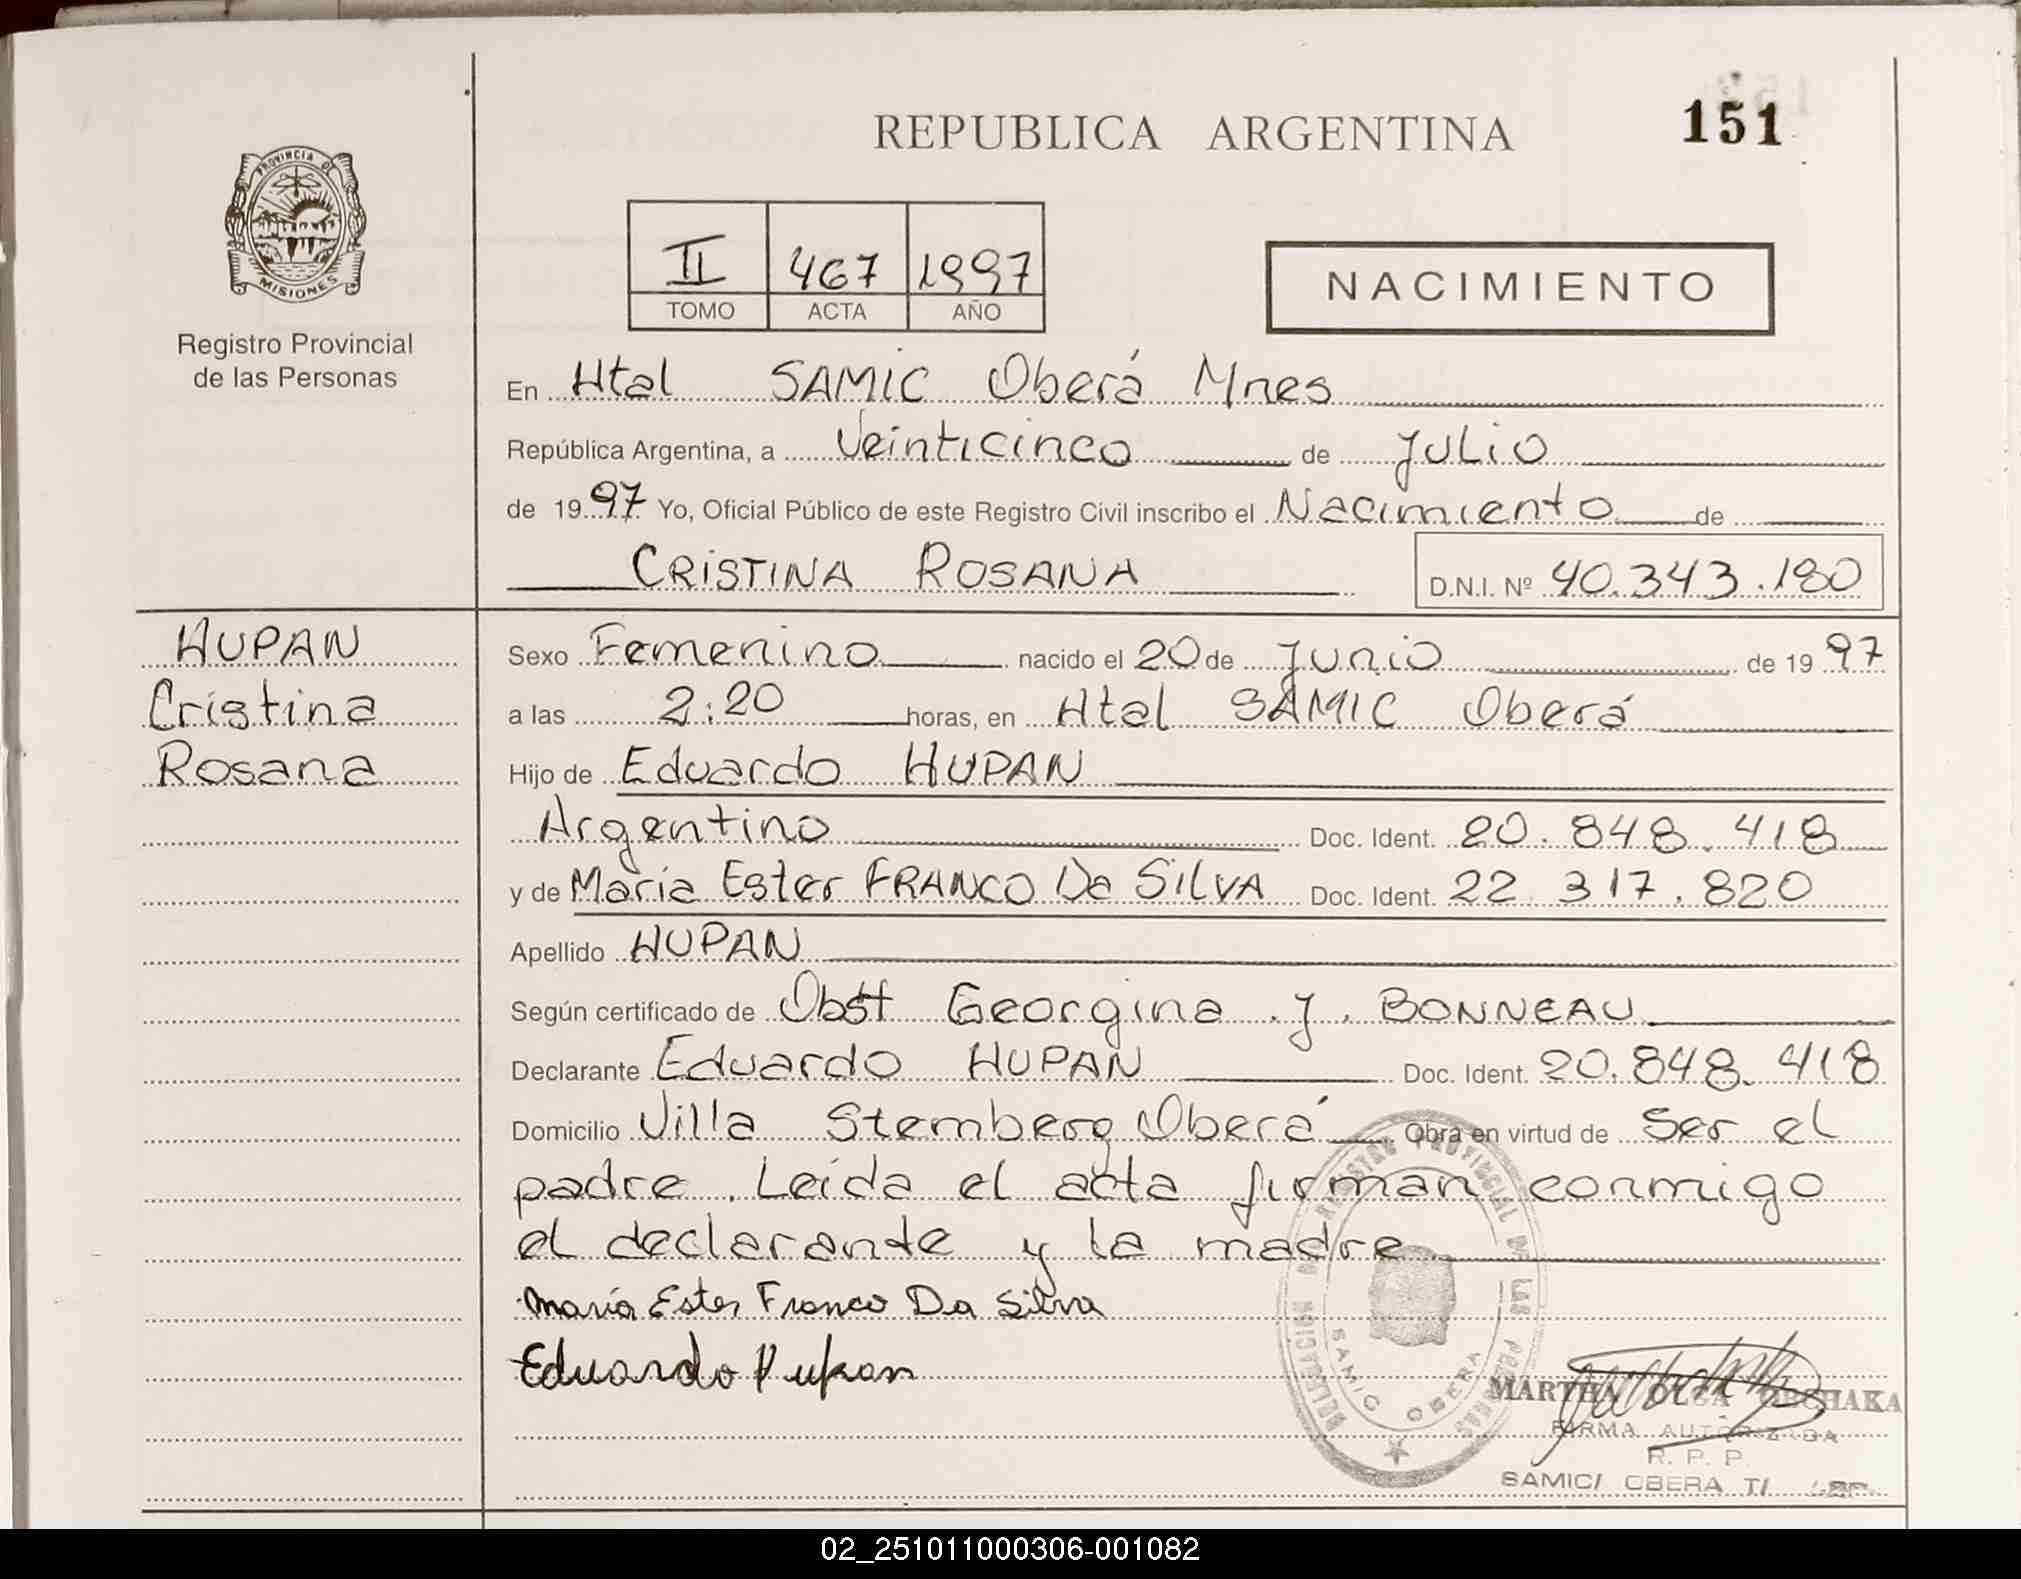 REPUBLICA ARGENTINA
151
PROVINCIA DE
MISIONES
Registro Provincial
de las Personas
II 467 1997
TOMO ACTA AÑO
NACIMIENTO
En Htal SAMIC Oberá Mnes
República Argentina, a Veinticinco de Julio
de 1997 Yo, Oficial Público de este Registro Civil inscribo el Nacimiento de
CRISTINA ROSANA D.N.I. Nº 40.343.180
HUPAN
Cristina
Rosana
Sexo Femenino nacido el 20 de Junio de 1997
a las 2:20 horas, en Htal SAMIC Oberá
Hijo de Eduardo HUPAN
Argentino Doc. Ident. 20.848.418
y de Maria Ester FRANCO Da SILVA Doc. Ident. 22.317.820
Apellido HUPAN
Según certificado de Obst Georgina J. BONNEAU
Declarante Eduardo HUPAN Doc. Ident. 20.848.418
Domicilio Villa Stemberg Oberá Obra en virtud de Ser el
padre. Leida el acta firman conmigo
el declarante y la madre
María Ester Franco Da Silva
Eduardo Hupan
DELEGACION DEL REGISTRO PROVINCIAL DE LAS PERSONAS
SAMIC OBERA
MARTHA OLGA
FIRMA AUTORIZADA
R. P. P.
SAMIC/ OBERA
02_251011000306-001082